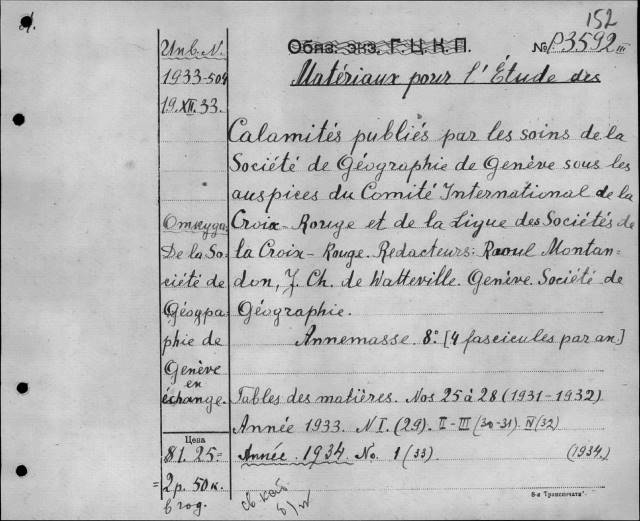 152
Инв. N.
Обяз. экз. Г. Ц. К. П.
№ P3592 III
1933-509
19.XII.33.
Matériaux pour l'Étude des
Calamités publiés par les soins de la
Société de Géographie de Genève sous les
auspices du Comité International de la
Croix-Rouge et de la Ligue des Sociétés de
la Croix-Rouge. Redacteurs: Raoul Montan-
don, J. Ch. de Watteville. Genève. Société de
Géographie.
Annemasse. 8° [4 fascicules par an]
Откуда
De la So-
ciété de
Géogra-
phie de
Genève
en
échange.
Tables des matières. Nos 25 à 28 (1931-1932)
Année 1933. N I. (29). II-III (30-31). IV (32)
Année 1934. No. 1 (33) (1934)
Цена
81. 25=
=2 р. 50 к.
в год.
6-я Транспечати